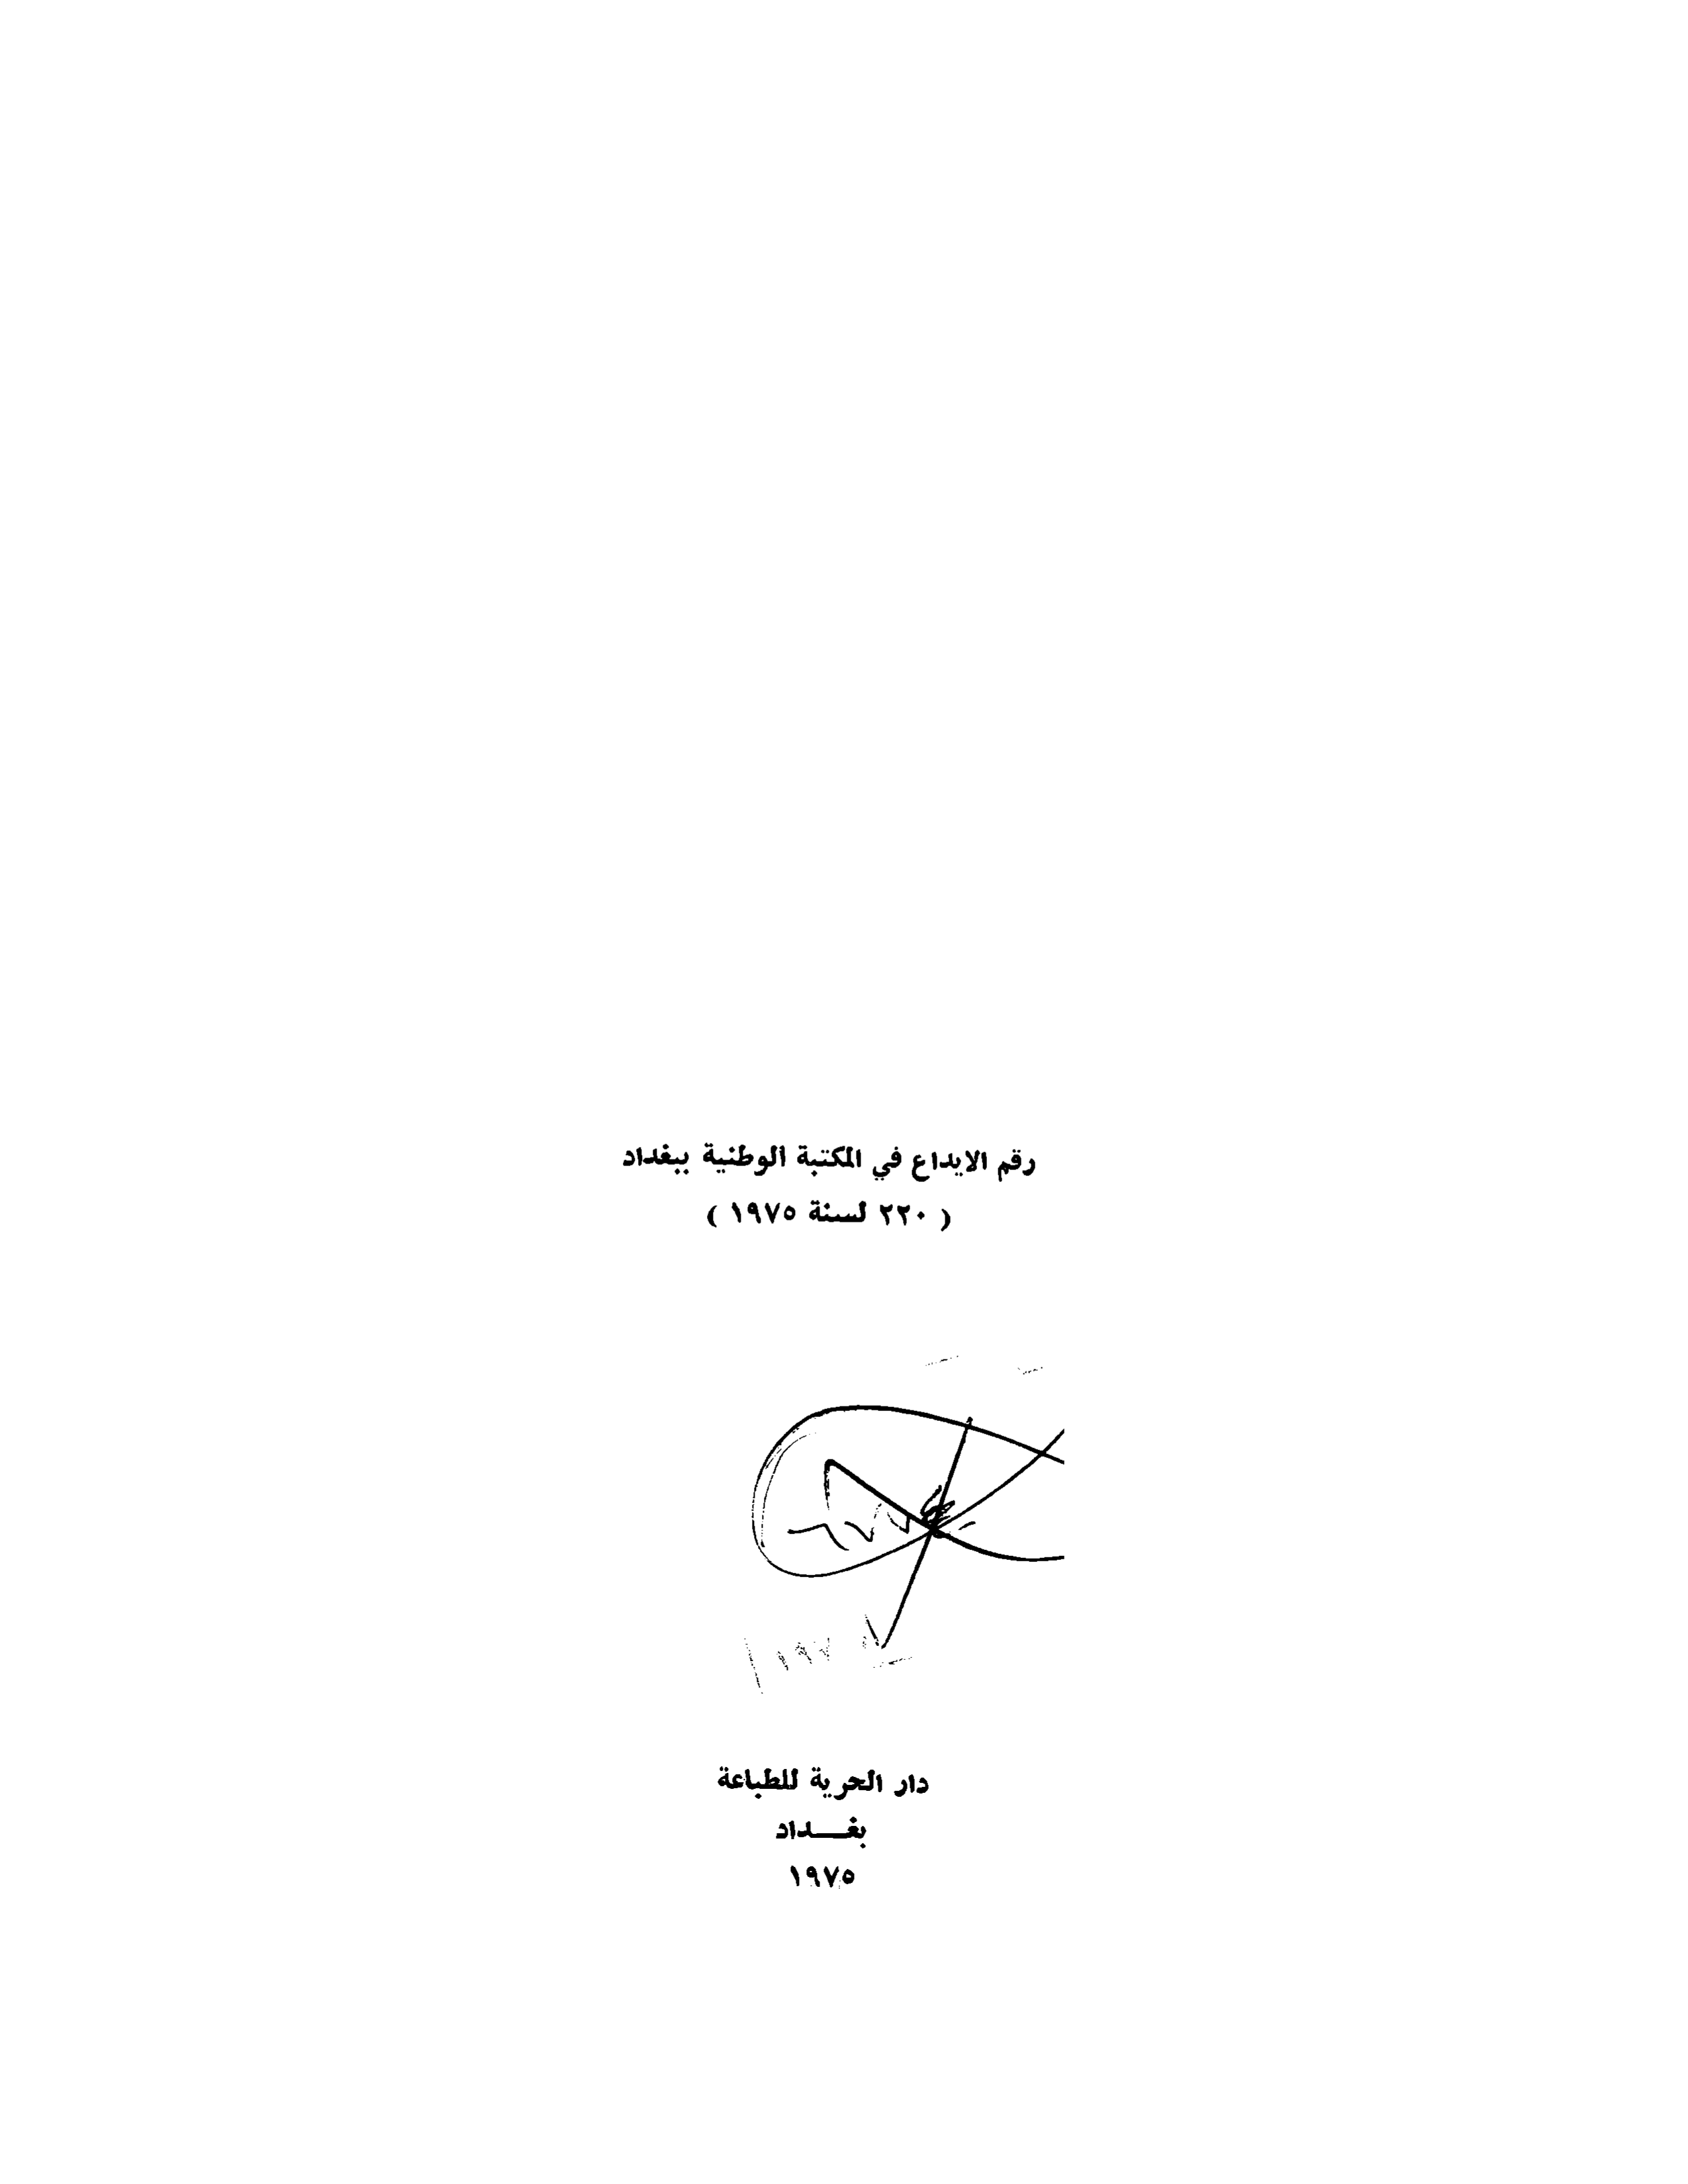 رقم الايداع في المكتبة الوطنية ببغداد
( ٢٢٠ لسنة ١٩٧٥ )
دار الحرية للطباعة
بغـــداد
١٩٧٥